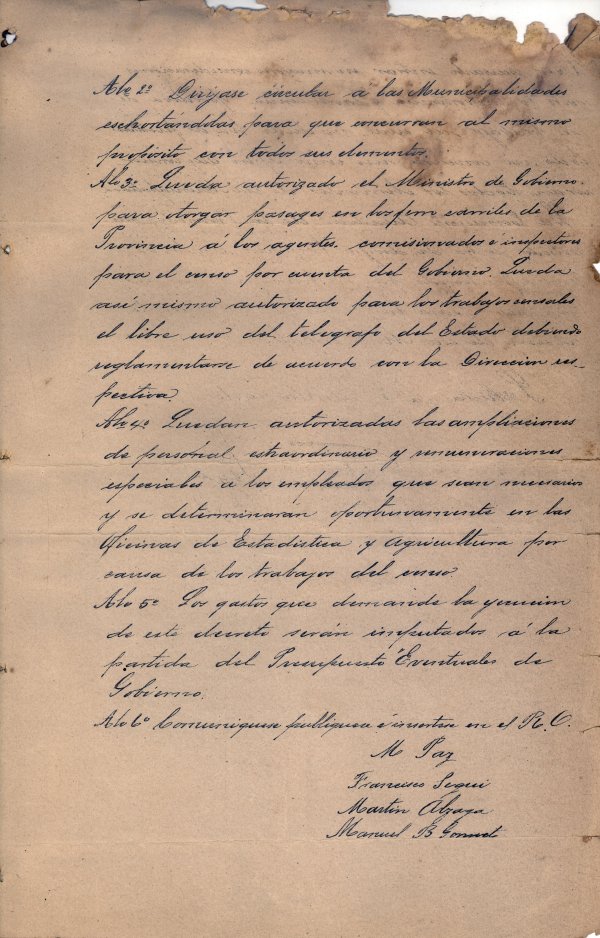 Alo 2º Dirijase circular á las Municipalidades
eschortándolas para que concurran al mismo
propósito con todos sus elementos.
Alo 3º Queda autorizado el Ministro de Gobierno
para otorgar pasages en los ferro carriles de la
Provincia á los agentes, comisionados e inspectores
para el censo por cuenta del Gobierno. Queda
asi mismo autorizado para los trabajos censales
el libre uso del telegrafo del Estado debiendo
reglamentarse de acuerdo con la Direccion res-
pectiva.
Alo 4º Quedan autorizadas las ampliaciones
de personal estraordinario y remuneraciones
especiales a los empleados que sean necesarios
y se determinaran oportunamente en las
Oficinas de Estadistica y Agricultura por
causa de los trabajos del censo.
Alo 5º Los gastos que demande la ejecucion
de este decreto serán imputados á la
partida del Presupuesto "Eventuales de
Gobierno.
Alo 6º Comuniquese publiquese é insertese en el R. O.
M Paz
Francisco Segui
Martin Alzaga
Manuel B Gonnet